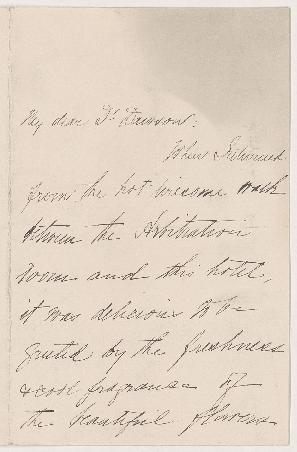 My dear Dr Dawson:
When I returned
from the hot tiresome walk
between the Arbitration
room and this hotel,
it was delicious to be
greeted by the freshness
& cool fragrance of
the beautiful flowers